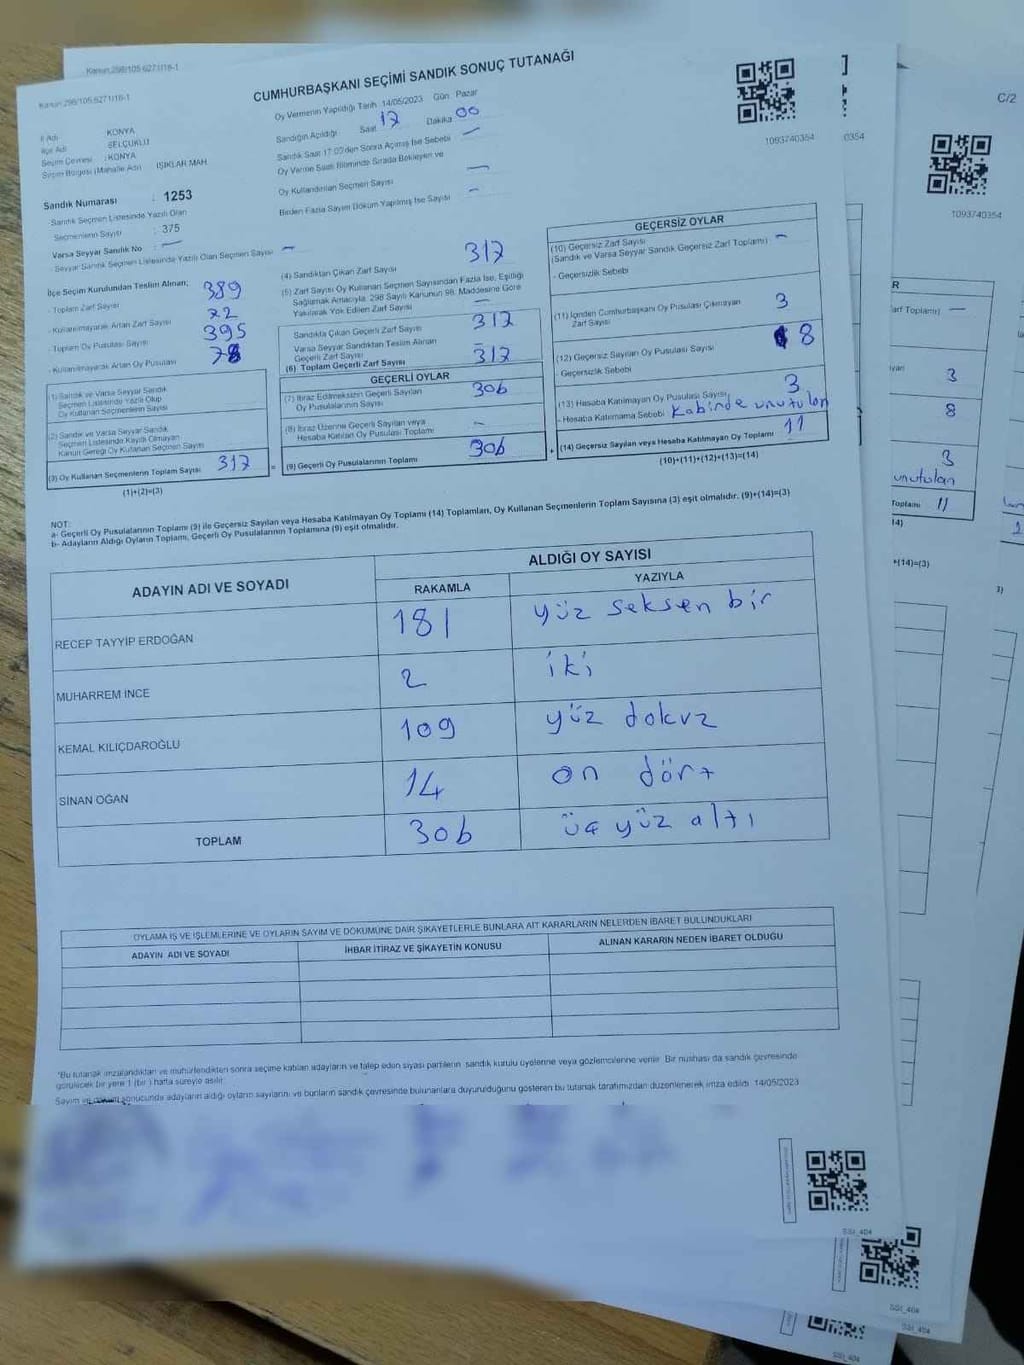 Kanun 298/105 6271/18-1
Kanun 298/105 6271/18-1
CUMHURBAŞKANI SEÇİMİ SANDIK SONUÇ TUTANAĞI
C/2
İl Adı KONYA
İlçe Adı SELÇUKLU
Seçim Çevresi : KONYA
Seçim Bölgesi (Mahalle Adı) IŞIKLAR MAH.
Sandık Numarası : 1253
Sandık Seçmen Listesinde Yazılı Olan
Seçmenlerin Sayısı : 375
Varsa Seyyar Sandık No : —
Seyyar Sandık Seçmen Listesinde Yazılı Olan Seçmen Sayısı —
Oy Vermenin Yapıldığı Tarih 14/05/2023 Gün Pazar
Sandığın Açıldığı Saat 17 Dakika 00
Sandık Saat 17:00'den Sonra Açılmış İse Sebebi —
Oy Verme Saati Bitiminde Sırada Bekleyen ve
Oy Kullandırılan Seçmen Sayısı —
Birden Fazla Sayım Döküm Yapılmış İse Sayısı —
1093740354
0354
1093740354
İlçe Seçim Kurulundan Teslim Alınan;
- Toplam Zarf Sayısı 389
- Kullanılmayarak Artan Zarf Sayısı 72
- Toplam Oy Pusulası Sayısı 395
- Kullanılmayarak Artan Oy Pusulası 78
(1) Sandık ve Varsa Seyyar Sandık
Seçmen Listesinde Yazılı Olup
Oy Kullanan Seçmenlerin Sayısı
(2) Sandık ve Varsa Seyyar Sandık
Seçmen Listesinde Kaydı Olmayan
Kanun Gereği Oy Kullanan Seçmen Sayısı
(3) Oy Kullanan Seçmenlerin Toplam Sayısı 317 =
(1)+(2)=(3)
(4) Sandıktan Çıkan Zarf Sayısı 317
(5) Zarf Sayısı Oy Kullanan Seçmen Sayısından Fazla İse, Eşitliği
Sağlamak Amacıyla, 298 Sayılı Kanunun 98. Maddesine Göre
Yakılarak Yok Edilen Zarf Sayısı —
Sandıkta Çıkan Geçerli Zarf Sayısı 317
Varsa Seyyar Sandıktan Teslim Alınan
Geçerli Zarf Sayısı —
(6) Toplam Geçerli Zarf Sayısı 317
GEÇERLİ OYLAR
(7) İtiraz Edilmeksizin Geçerli Sayılan
Oy Pusulalarının Sayısı 306
(8) İtiraz Üzerine Geçerli Sayılan veya
Hesaba Katılan Oy Pusulası Toplamı —
(9) Geçerli Oy Pusulalarının Toplamı 306 +
GEÇERSİZ OYLAR
(10) Geçersiz Zarf Sayısı
(Sandık ve Varsa Seyyar Sandık Geçersiz Zarf Toplamı) —
- Geçersizlik Sebebi
(11) İçinden Cumhurbaşkanı Oy Pusulası Çıkmayan
Zarf Sayısı 3
(12) Geçersiz Sayılan Oy Pusulası Sayısı 8
- Geçersizlik Sebebi
(13) Hesaba Katılmayan Oy Pusulası Sayısı 3
- Hesaba Katılmama Sebebi Kabinde unutulan
(14) Geçersiz Sayılan veya Hesaba Katılmayan Oy Toplamı 11
(10)+(11)+(12)+(13)=(14)
NOT:
a- Geçerli Oy Pusulalarının Toplamı (9) ile Geçersiz Sayılan veya Hesaba Katılmayan Oy Toplamı (14) Toplamları, Oy Kullanan Seçmenlerin Toplam Sayısına (3) eşit olmalıdır. (9)+(14)=(3)
b- Adayların Aldığı Oyların Toplamı, Geçerli Oy Pusulalarının Toplamına (9) eşit olmalıdır.
ADAYIN ADI VE SOYADI
ALDIĞI OY SAYISI
RAKAMLA YAZIYLA
RECEP TAYYİP ERDOĞAN 181 yüz seksen bir
MUHARREM İNCE 2 iki
KEMAL KILIÇDAROĞLU 109 yüz dokuz
SİNAN OĞAN 14 on dört
TOPLAM 306 üç yüz altı
OYLAMA İŞ VE İŞLEMLERİNE VE OYLARIN SAYIM VE DÖKÜMÜNE DAİR ŞİKAYETLERLE BUNLARA AİT KARARLARIN NELERDEN İBARET BULUNDUKLARI
ADAYIN ADI VE SOYADI İHBAR İTİRAZ VE ŞİKAYETİN KONUSU ALINAN KARARIN NEDEN İBARET OLDUĞU
"Bu tutanak imzalandıktan ve mühürlendikten sonra seçime katılan adayların ve talep eden siyasi partilerin sandık kurulu üyelerine veya gözlemcilerine verilir. Bir nüshası da sandık çevresinde
görülecek bir yere 1 (bir) hafta süreyle asılır.
Sayım ve döküm sonucunda adayların aldığı oyların sayılarını ve bunların sandık çevresinde bulunanlara duyurulduğunu gösteren bu tutanak tarafımızdan düzenlenerek imza edildi. 14/05/2023
SSI_404
SSI_404
SSI_404
SSI_404
R
arf Toplamı) —
3
8
3
unutulan
Toplamı 11
14)
+(14)=(3)
3)